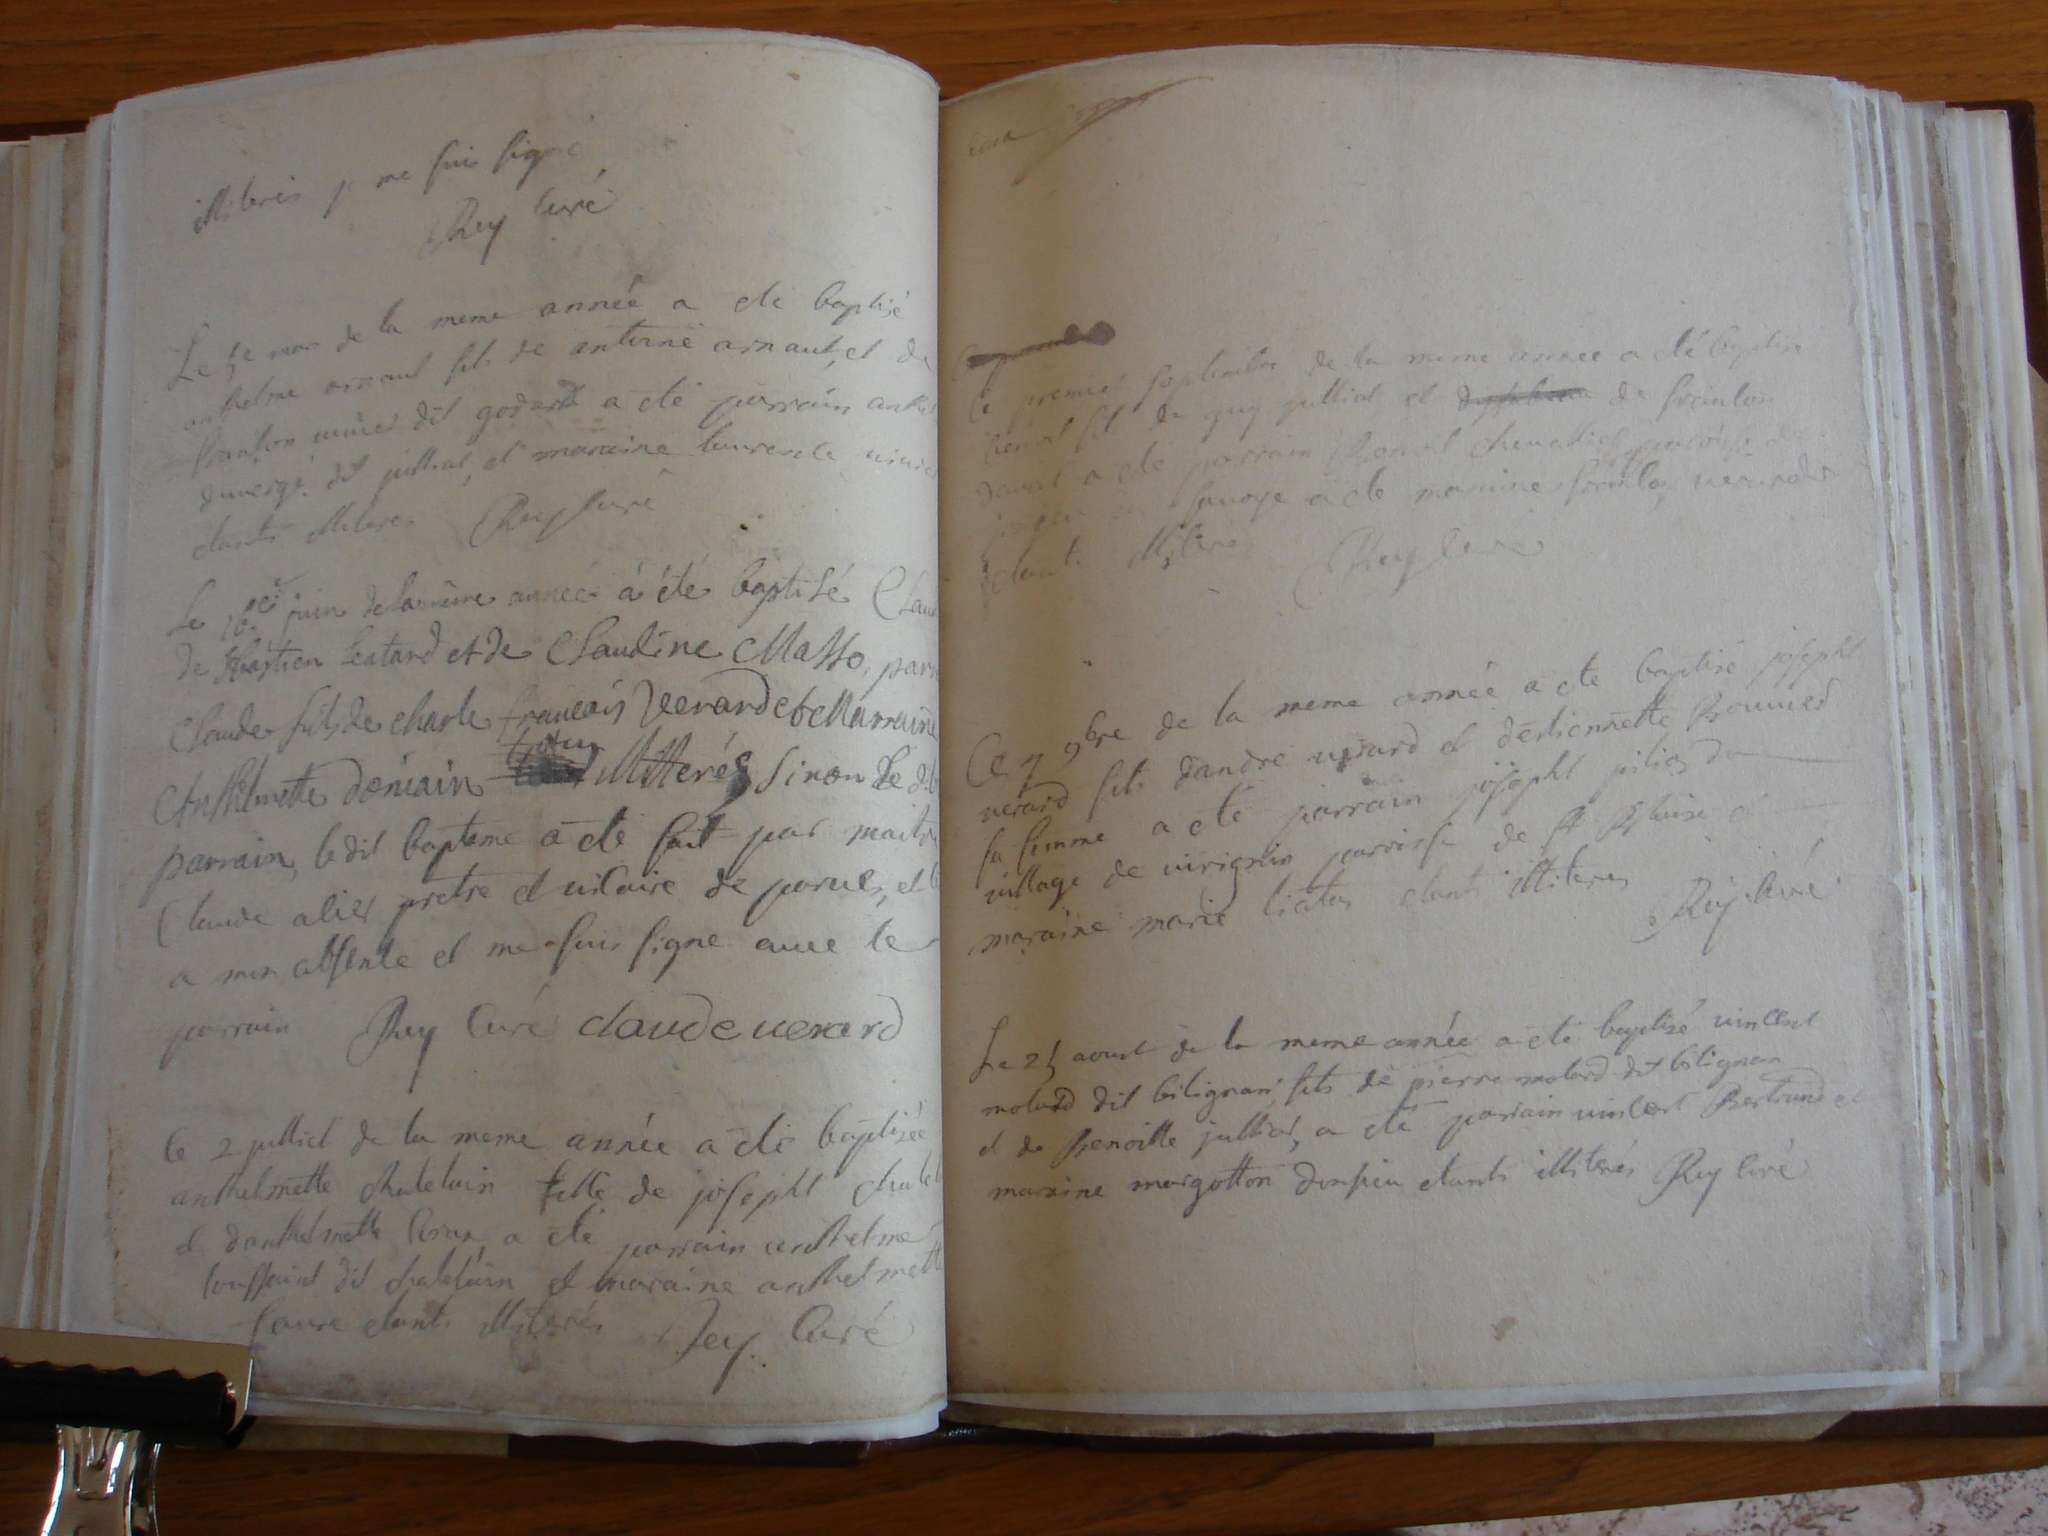 illiteres je me suis signé
Rey Curé
Le 5e mars de la meme année a ete baptisé
anthelme arnaut fils de antoine arnaut, et de
dit godard a ete parrain anthel
dit julliat, et maraine laurence
etants illiteres Rey Curé
Le 10e juin de la même année à été baptisé Clau
de sébastien Leatard et de Claudine Masso, parr
Claude fils de charle françois Verard et Marraine
Anthelmette demain illiterés sinon Le dit
parrain, le dit bapteme a ete fait par maitre
Claude alier pretre et vicaire de parves, et
a mon absence et me suis signe avec le
parrain Rey Curé claude verard
Le 2 julliet de la meme année a ete baptisée
anthelmette chatelain fille de josepht chatel
et danthelmette a ete parrain anthelme
toussaint dit chatelain et maraine anthelmett
faure etants illiterés Rey Curé
Le premier septembre de la meme année a eté baptisé
benoit fils de guy julliat et de
a ete parrain benoit chevallier paroisse de
en savoye a ete maraine
etants illiteres Rey Curé
Ce 4 9bre de la meme année a ete baptisé josepht
verard fils dandre verard et destiennette Bouvier
sa femme a ete parrain josepht du
village de virignin parroisse de St Blaise et
maraine marie etants illiteres Rey Curé
Le 25 aoust de la meme année a été baptisé vincent
molard dit bilignan, fils de pierre molard dit bilignan
et de Benoitte julliat, a eté parrain vincent Bertrand et
maraine margotton etants illiterés Rey Curé